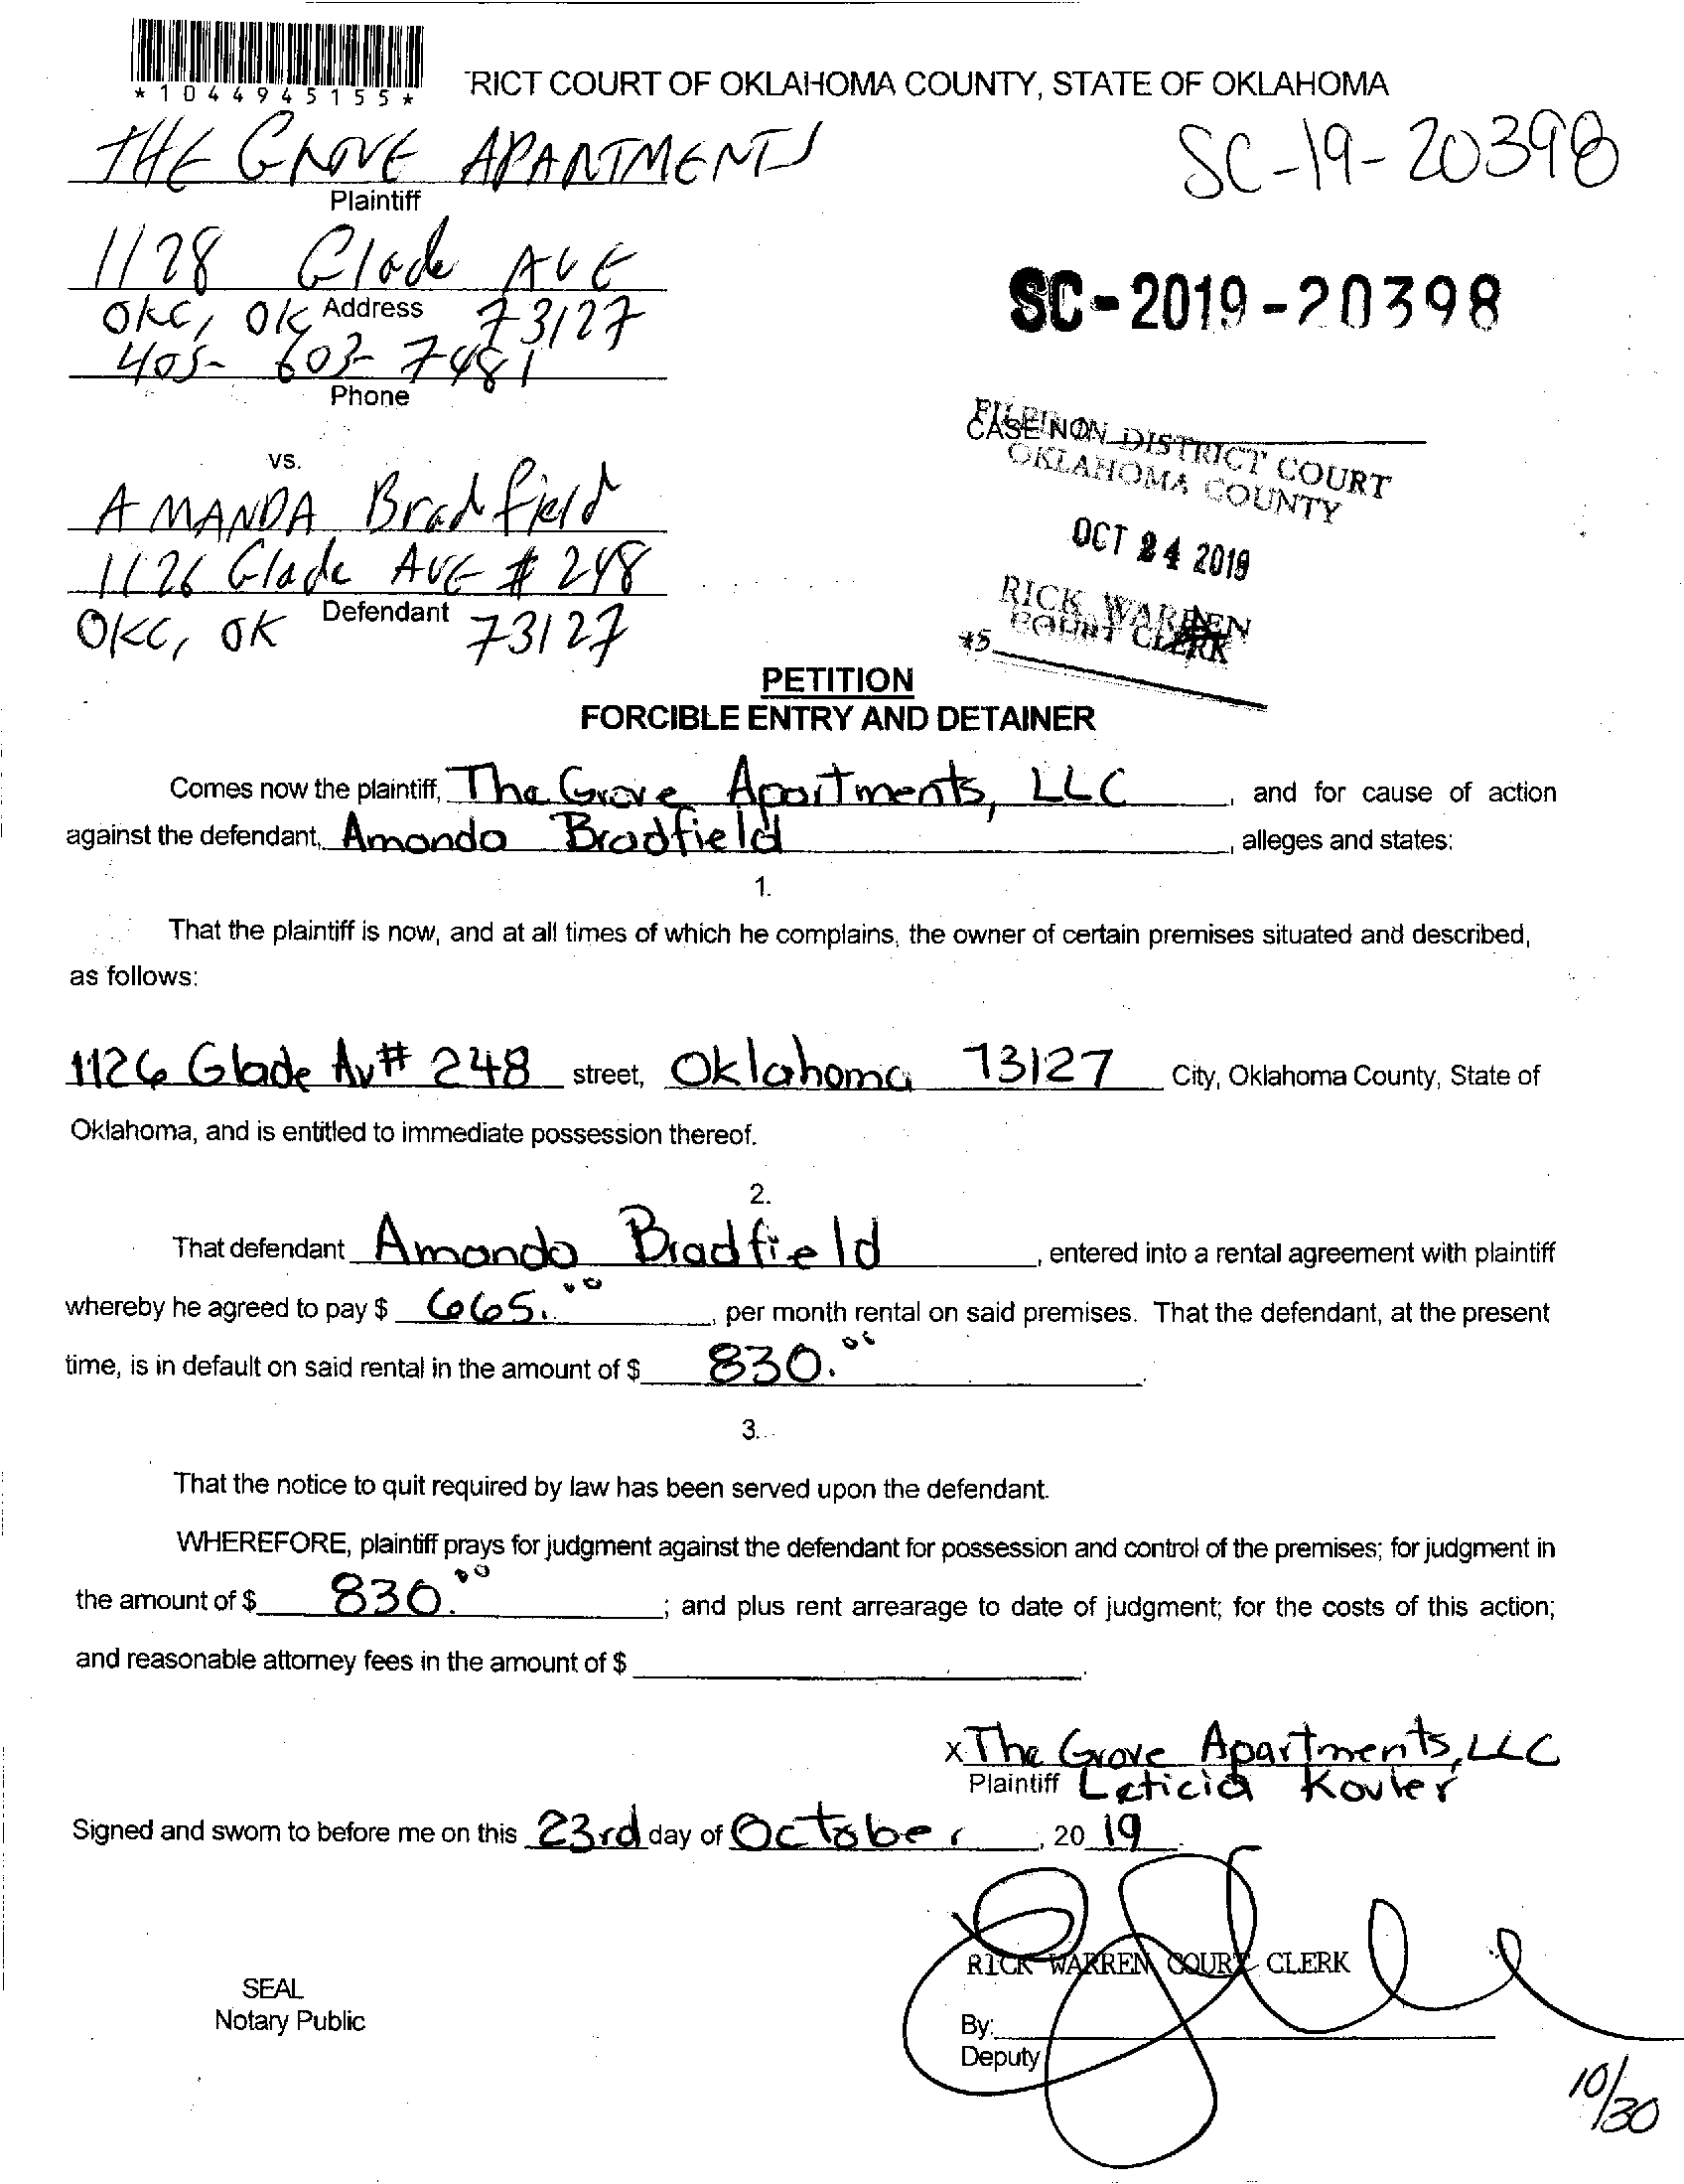 *1044945155*
RICT COURT OF OKLAHOMA COUNTY, STATE OF OKLAHOMA
THE GROVE APARTMENTS
SC-19-20398
Plaintiff
1128 Glade AVE
Address
OKC, OK 73127
SC-2019-20398
405-603-7481
Phone
FILED IN DISTRICT COURT
CASE NO.
OKLAHOMA COUNTY
vs.
AMANDA Bradfield
OCT 24 2019
1126 Glade AVE # 248
RICK WARREN
Defendant
COURT CLERK
OKC, OK 73127
PETITION
FORCIBLE ENTRY AND DETAINER
Comes now the plaintiff, The Grove Apartments, LLC, and for cause of action
against the defendant, Amanda Bradfield, alleges and states:
1.
That the plaintiff is now, and at all times of which he complains, the owner of certain premises situated and described,
as follows:
1126 Glade Av# 248 street, Oklahoma 73127 City, Oklahoma County, State of
Oklahoma, and is entitled to immediate possession thereof.
2.
That defendant Amanda Bradfield, entered into a rental agreement with plaintiff
whereby he agreed to pay $ 665.00, per month rental on said premises. That the defendant, at the present
time, is in default on said rental in the amount of $ 830.00.
3.
That the notice to quit required by law has been served upon the defendant.
WHEREFORE, plaintiff prays for judgment against the defendant for possession and control of the premises; for judgment in
the amount of $ 830.00; and plus rent arrearage to date of judgment; for the costs of this action;
and reasonable attorney fees in the amount of $ .
x The Grove Apartments, LLC
Plaintiff Leticia
Signed and sworn to before me on this 23rd day of October, 20 19.
RICK WARREN COURT CLERK
SEAL
Notary Public
By:
Deputy
10/30